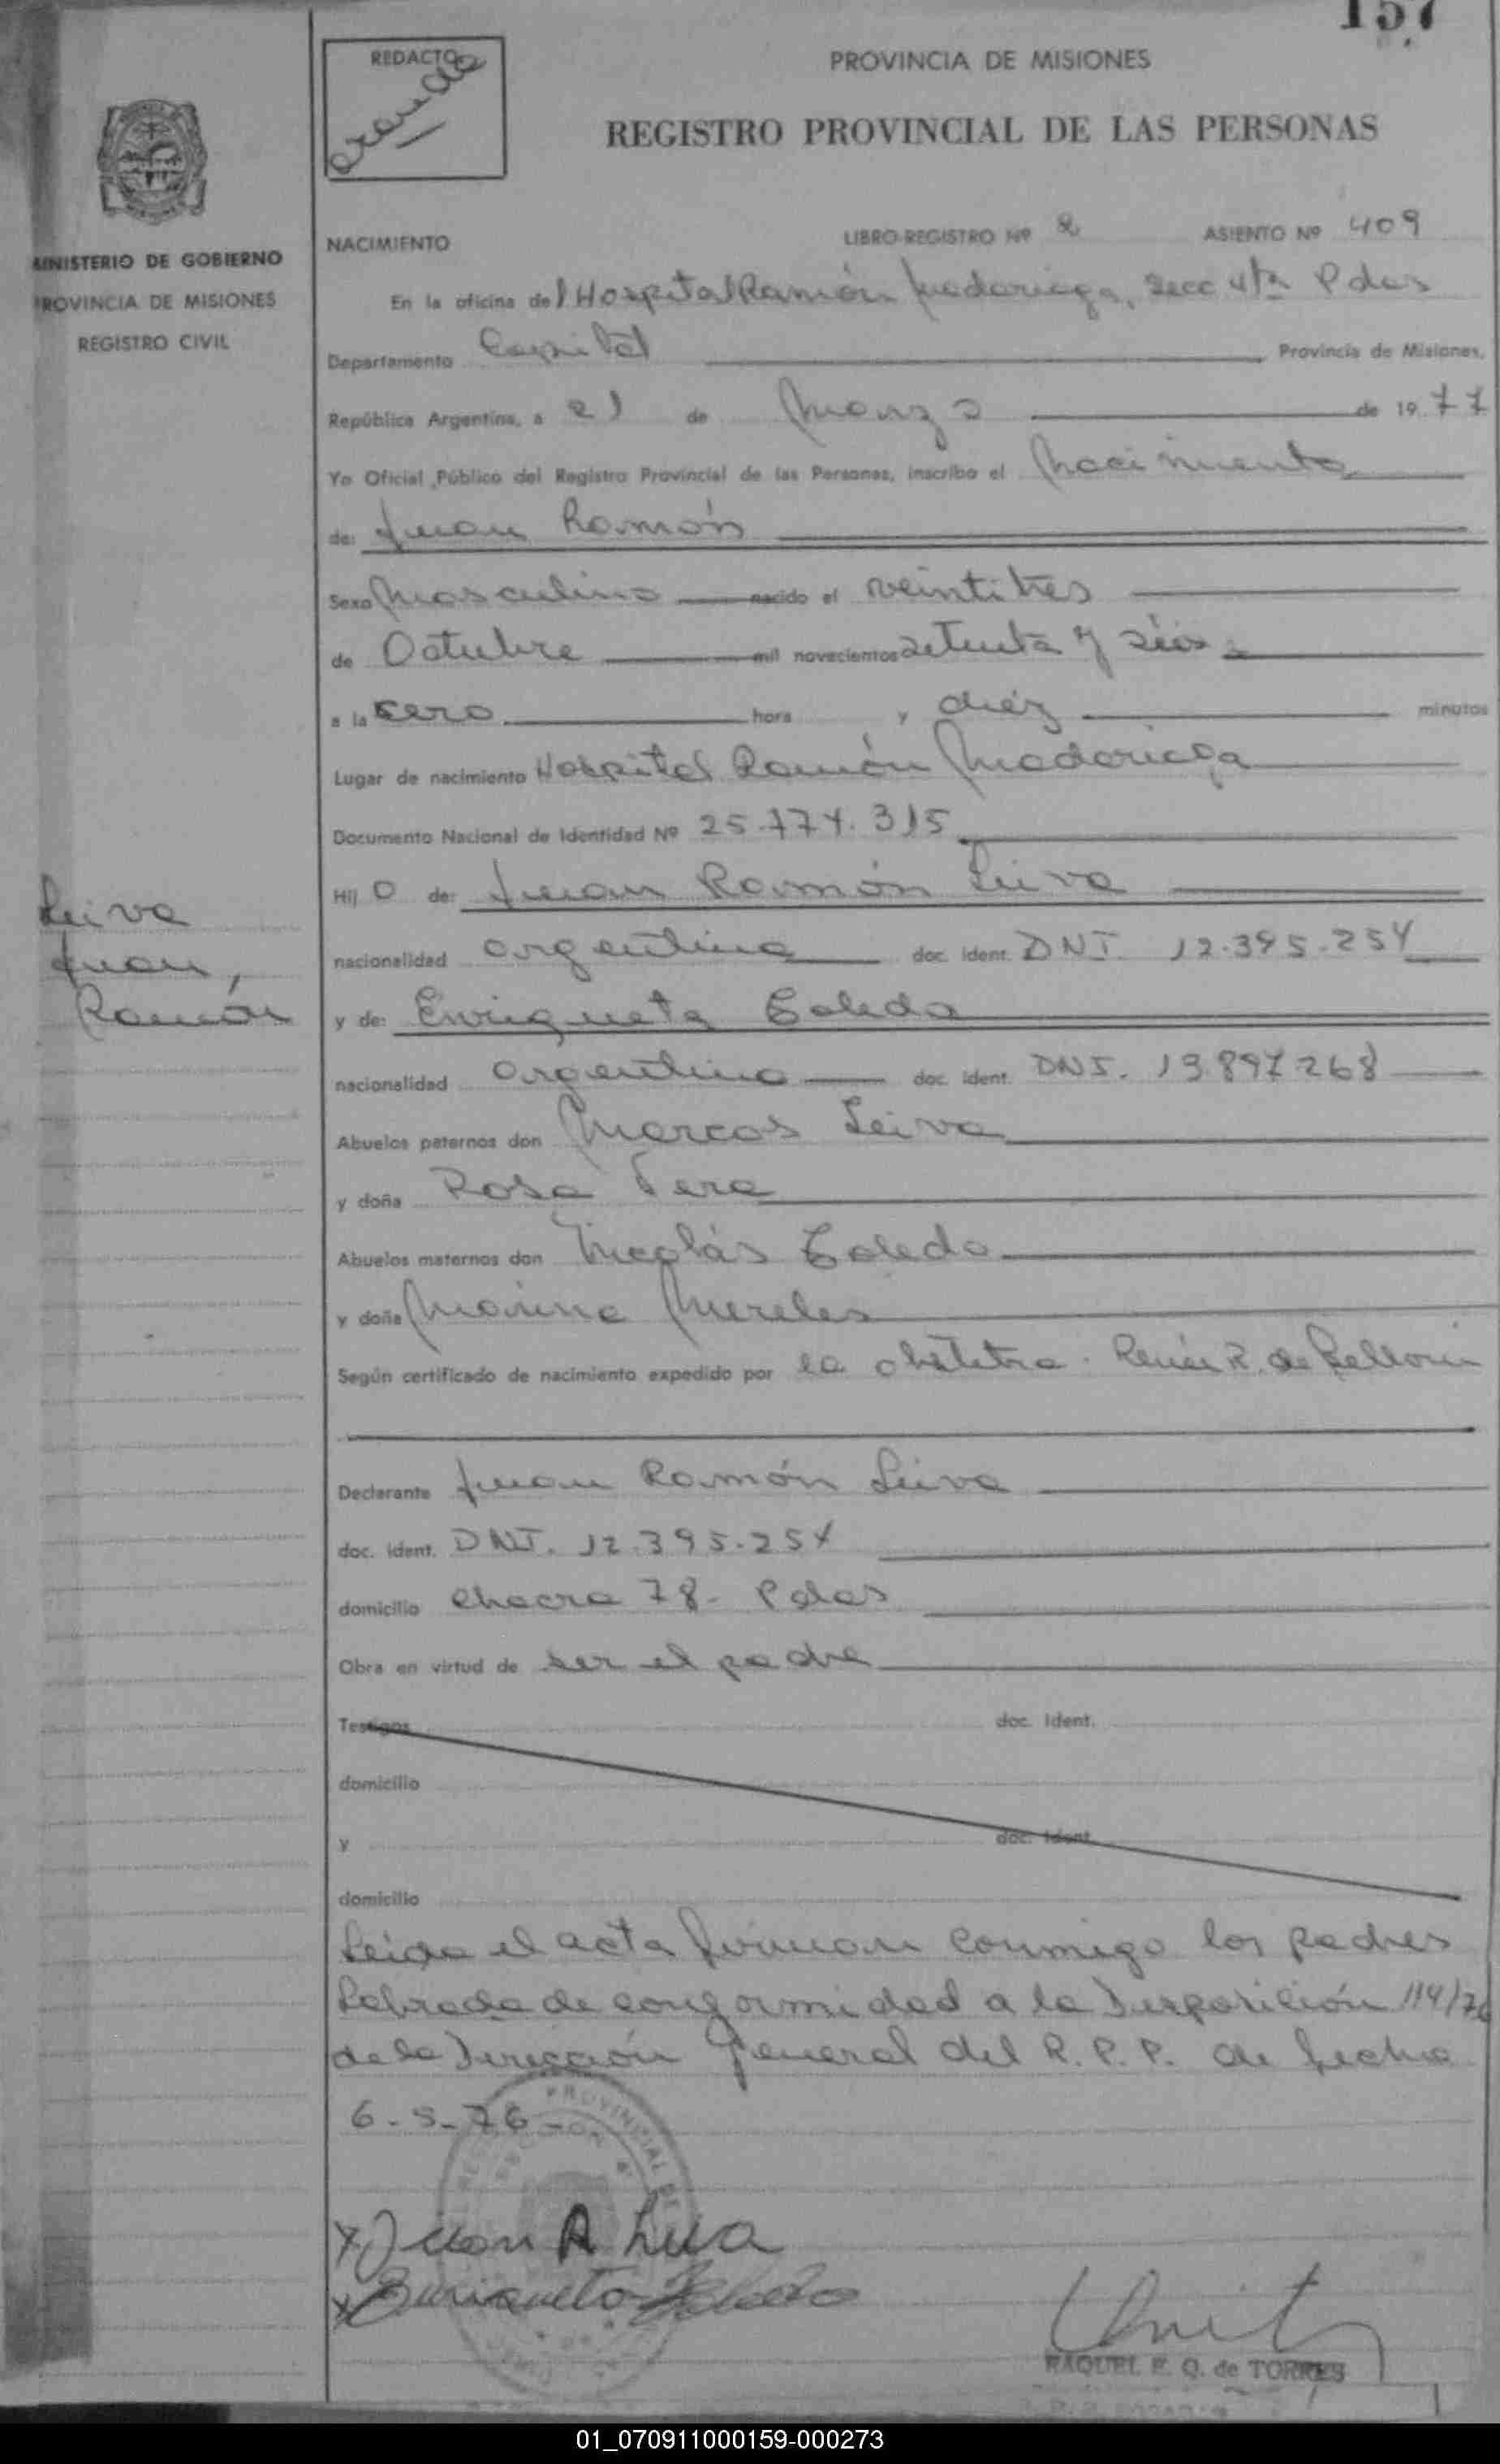 157
REDACTO
PROVINCIA DE MISIONES
REGISTRO PROVINCIAL DE LAS PERSONAS
MINISTERIO DE GOBIERNO
PROVINCIA DE MISIONES
REGISTRO CIVIL
NACIMIENTO LIBRO-REGISTRO Nº 2 ASIENTO Nº 409
En la oficina del Hospital Ramón Madariaga, Secc 4ta Pdas
Departamento Capital Provincia de Misiones,
República Argentina, a 21 de Marzo de 1977
Yo Oficial Público del Registro Provincial de las Personas, inscribo el Nacimiento
de: Juan Ramón
Sexo Masculino nacido el veintitres
de Octubre mil novecientos setenta y seis
a la cero hora y diéz minutos
Lugar de nacimiento Hospital Ramón Madariaga
Documento Nacional de Identidad Nº 25.774.315
Hijo de: Juan Ramón Leiva
Leiva
Juan,
Ramón
nacionalidad argentina doc. ident. DNI. 12.395.254
y de: Enriqueta Toledo
nacionalidad argentina doc. ident. DNI. 13.897.268
Abuelos paternos don Marcos Leiva
y doña Rosa
Abuelos maternos don Nicolás Toledo
y doña Marina Mereles
Según certificado de nacimiento expedido por la obstetra. Renée R. de
Declarante Juan Ramón Leiva
doc. ident. DNI. 12.395.254
domicilio chacra 78- Pdas
Obra en virtud de ser el padre
Testigos doc. ident.
domicilio
y doc. ident.
domicilio
Leida el acta firman conmigo los padres
Labrada de conformidad a la Disposición 114/76
de la Dirección General del R.P.P. de fecha
6-5-76-
x Juan R Leiva
x Enriqueta Toledo
RAQUEL E. Q. de TORRES
01_070911000159-000273